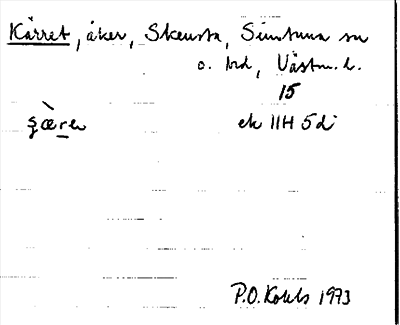 Kärret, åker, Skensta, Simtuna sn
o. hd, Västm. l.
15
ek 11H 5d
P.O. Kohls 1973